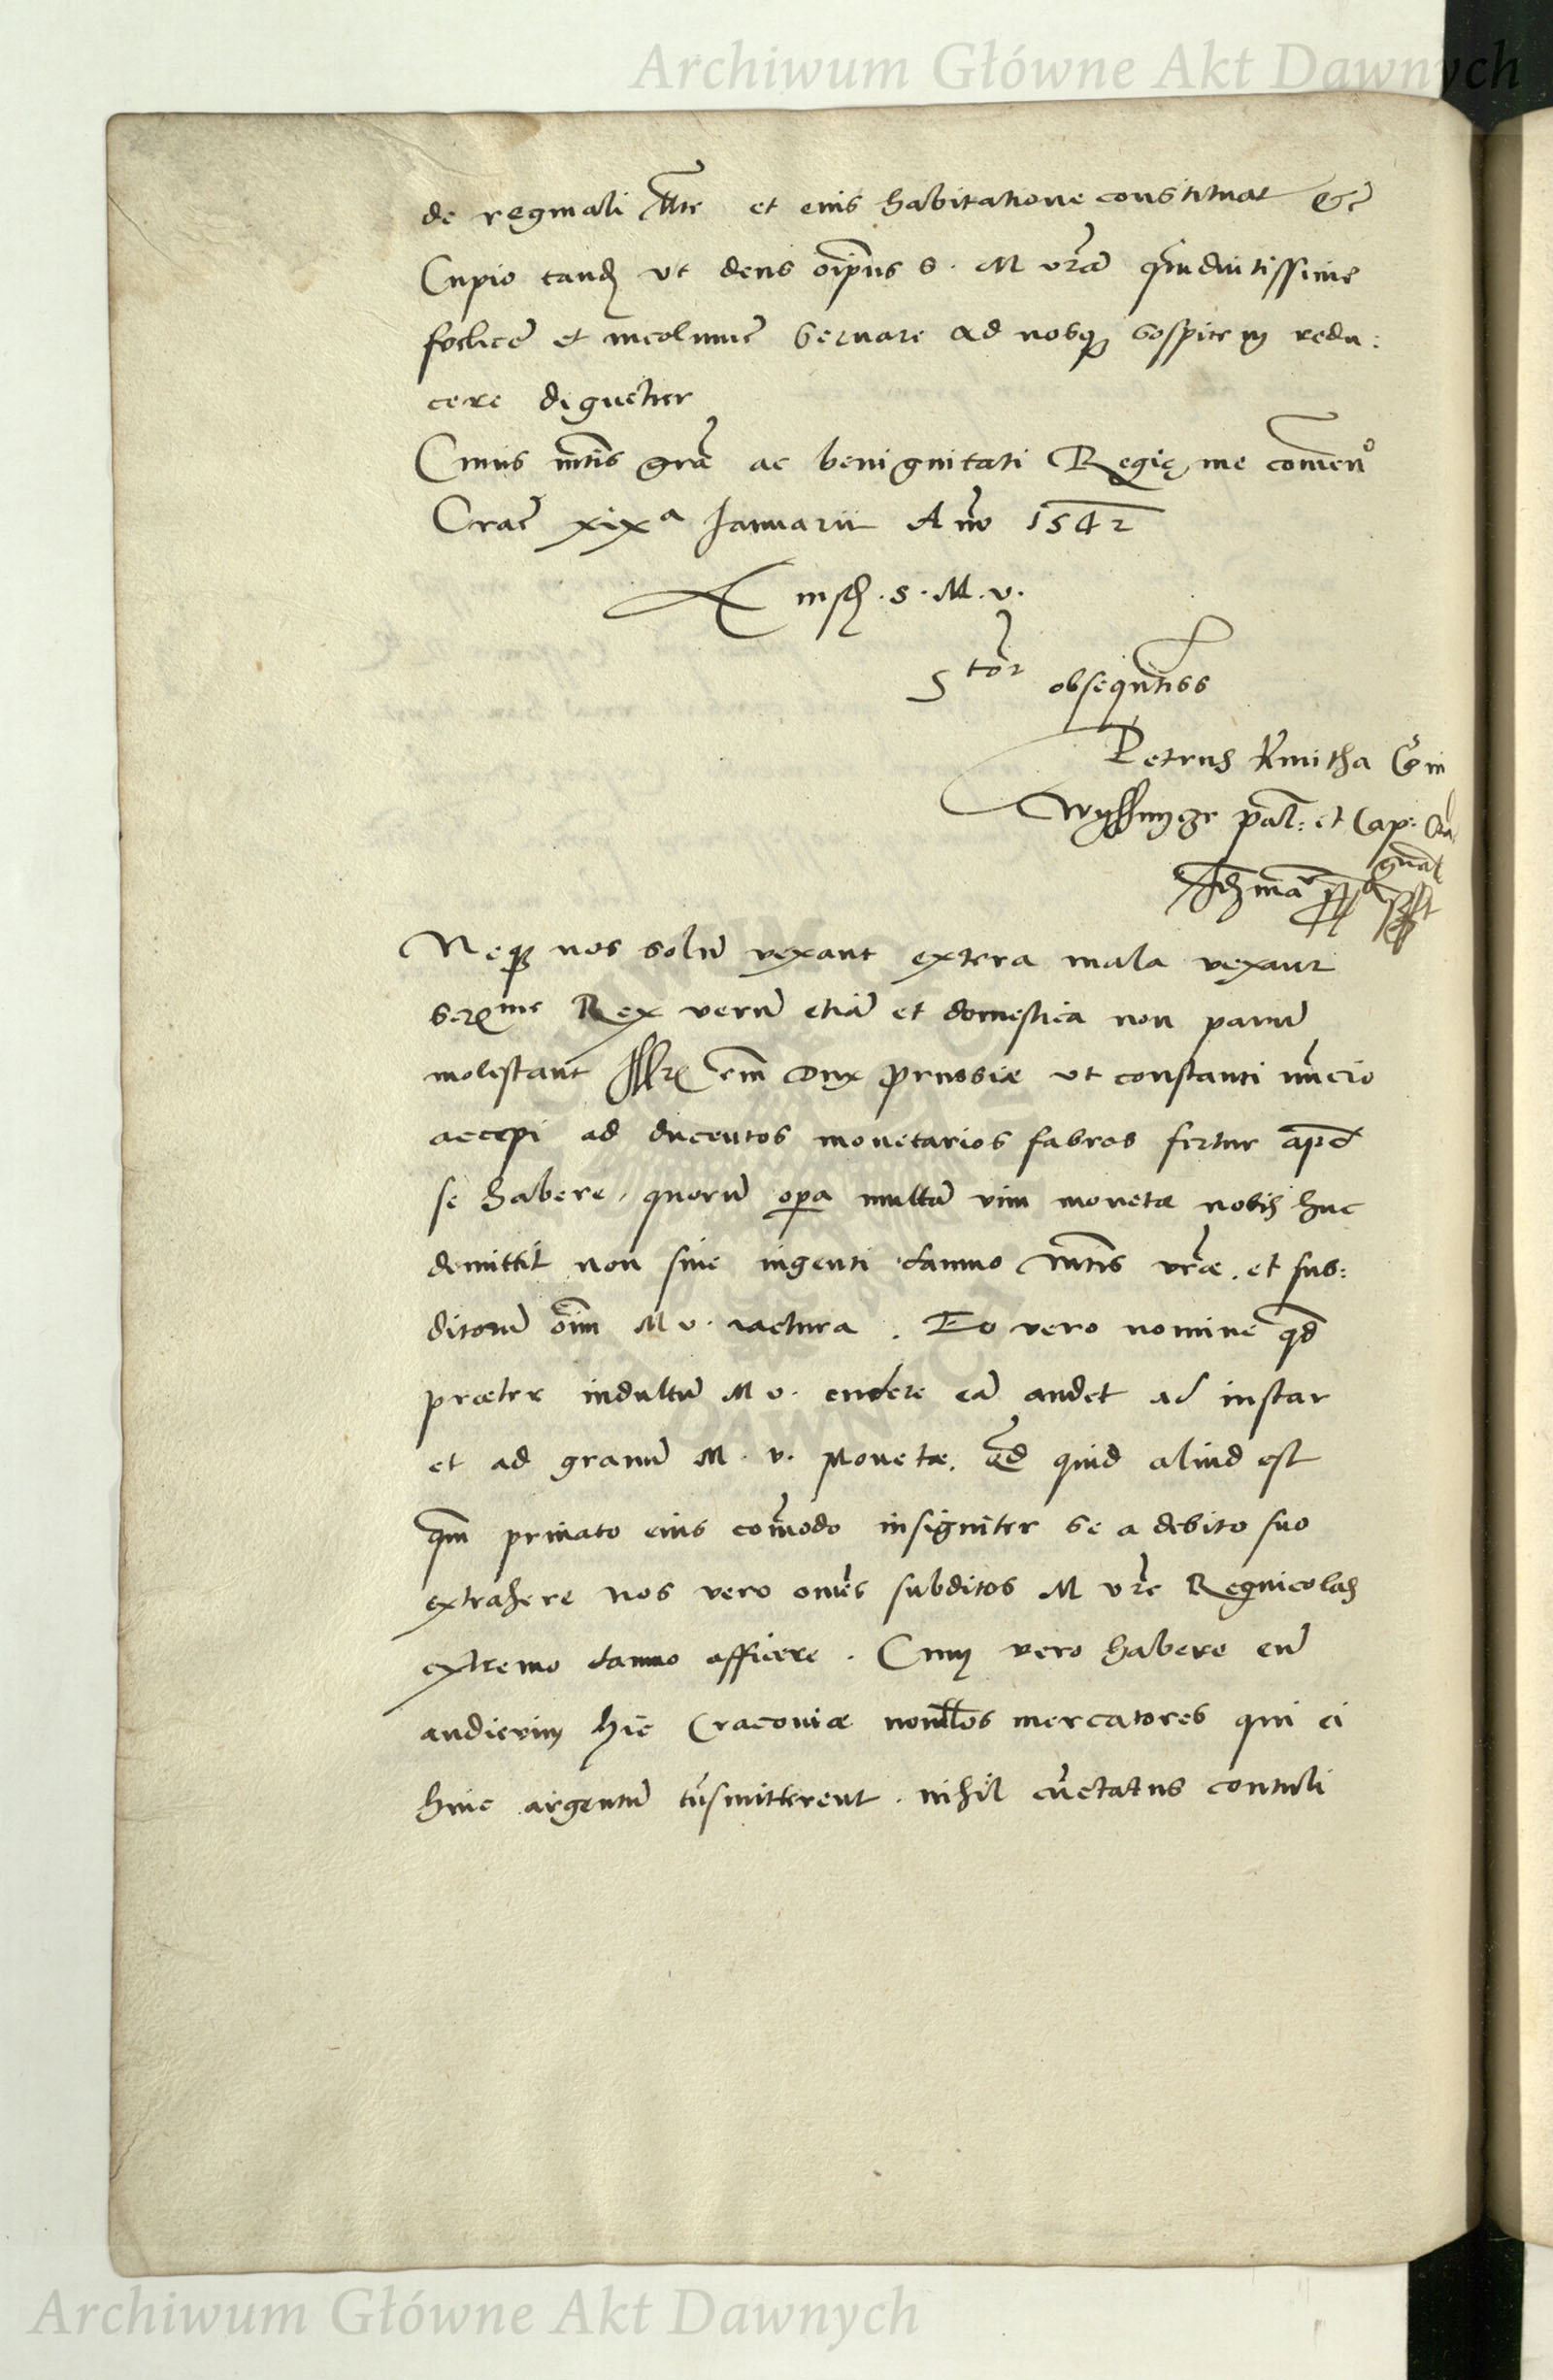 Archiwum Główne Akt Dawnych
de reginali Mte et eius habitatione constituat &c
Cupio tandē ut deus oīpns S. M vrā q̄mdiutissime
foelicē et incolumē servare ad nosq; sospitem redu:
cere dignetur
Cuius mtis grā ac benignitati Regię me comenō
Crac̄ xix a Januarii Anno 1542
Eiusdē. S. M. v.
S tor obsequntiss
Petrus Kmitha C in
Wyssnycze pāl: et Cap: Cra
Neq; nos solū vexant extera mala vexant
serme Rex verū etiā et domestica non parum
molestant Illr em̄ Dux Prussiæ ut constanti nūcio
accepi ad ducentos monetarios fabros fertur apd
se habere, quorū opa multā vim monetæ nobis huc
demittit non sine ingenti damno mtis vræ. et sub:
ditorū oīm M v. iactura. Eo vero nomine qd
præter indultū M v. cudere eā audet ad instar
et ad granū M. v. Monetæ. qd quid aliud est
qm privato eius comodo insigniter se a debito suo
extrahere nos vero omēs subditos M vre Regnicolas
extremo damno afficere. Cum vero habere eū
audierim hic Cracoviæ nonullos mercatores qui ei
hinc argentū trasmitterent. nihil cūctatus contuli
Archiwum Główne Akt Dawnych